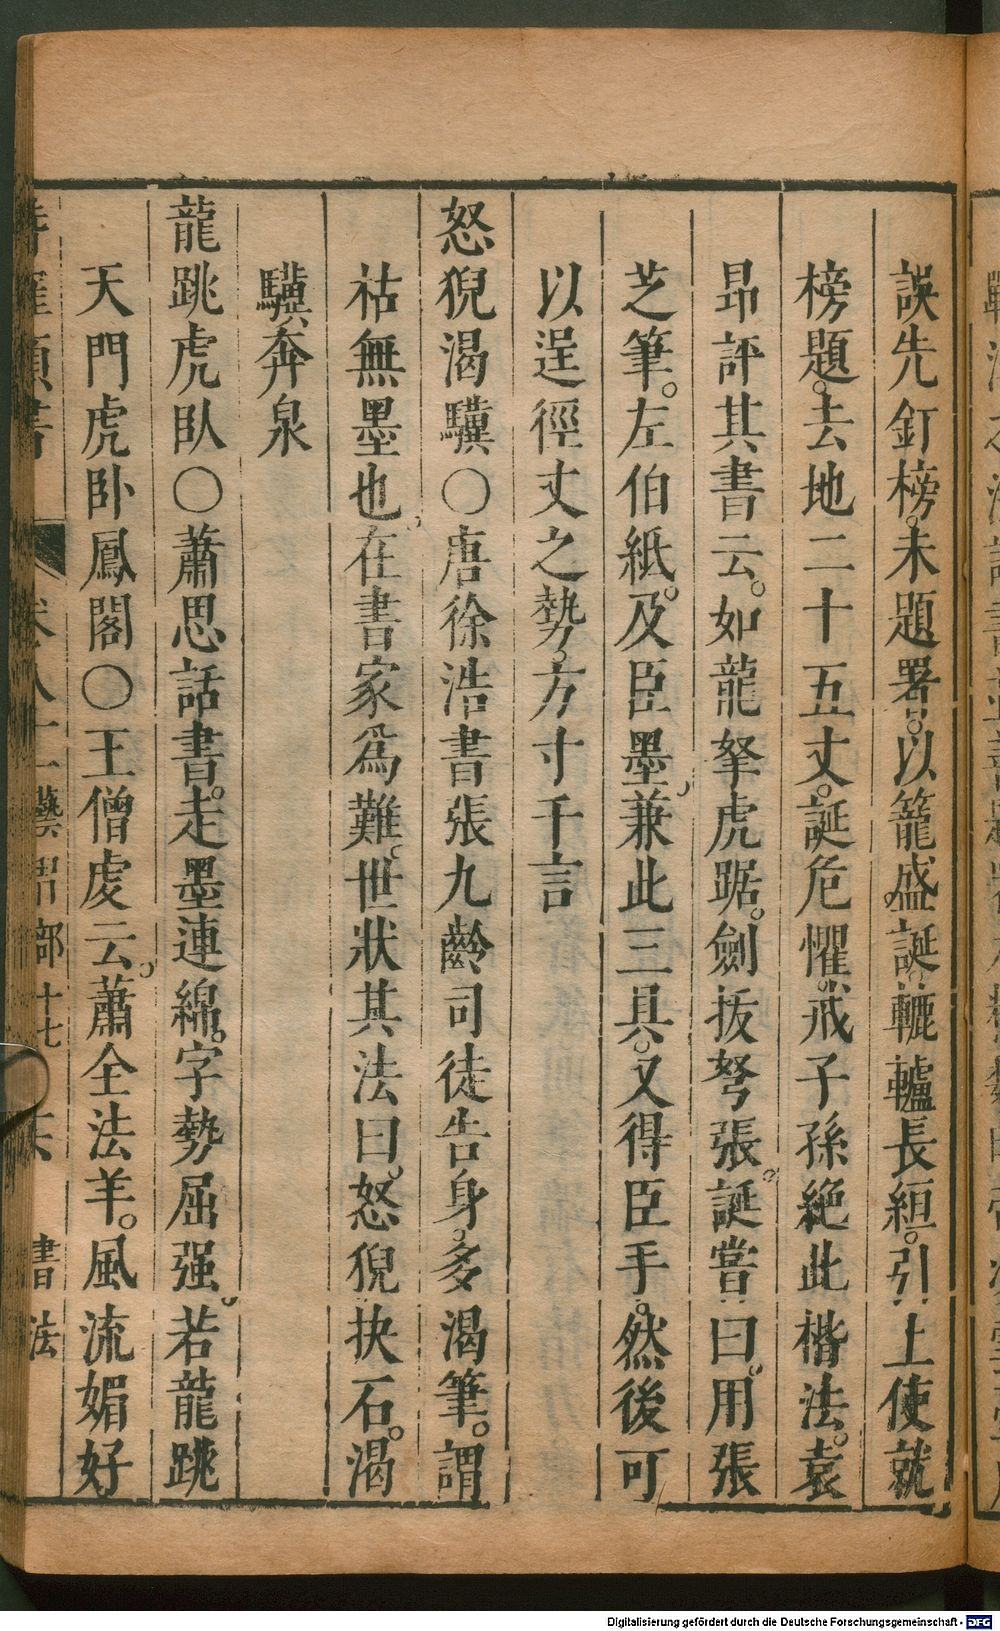 誤先釘榜。未題署。以籠盛誕轆轤長絙。引上使就
榜題。去地二十五丈。誕危懼。戒子孫絕此楷法。袁
昻評其書云。如龍拏虎踞。劍拔弩張。誕嘗曰。用張
芝筆。左伯紙。及臣墨。兼此三具。又得臣手。然後可
以逞徑丈之勢。方寸千言
怒猊渴驥○唐徐浩書張九齡司徒告身。多渴筆。謂
祜無墨也。在書家爲難。世狀其法曰。怒猊抉石。渴
驥奔泉
龍跳虎臥○蕭思話書。走墨連綿。字勢屈强。若龍跳
天門虎卧鳳閣○王僧虔云。蕭全法羊。風流媚好
類書 卷八十一藝習部十七 書法
Digitalisierung gefördert durch die Deutsche Forschungsgemeinschaft - DFG